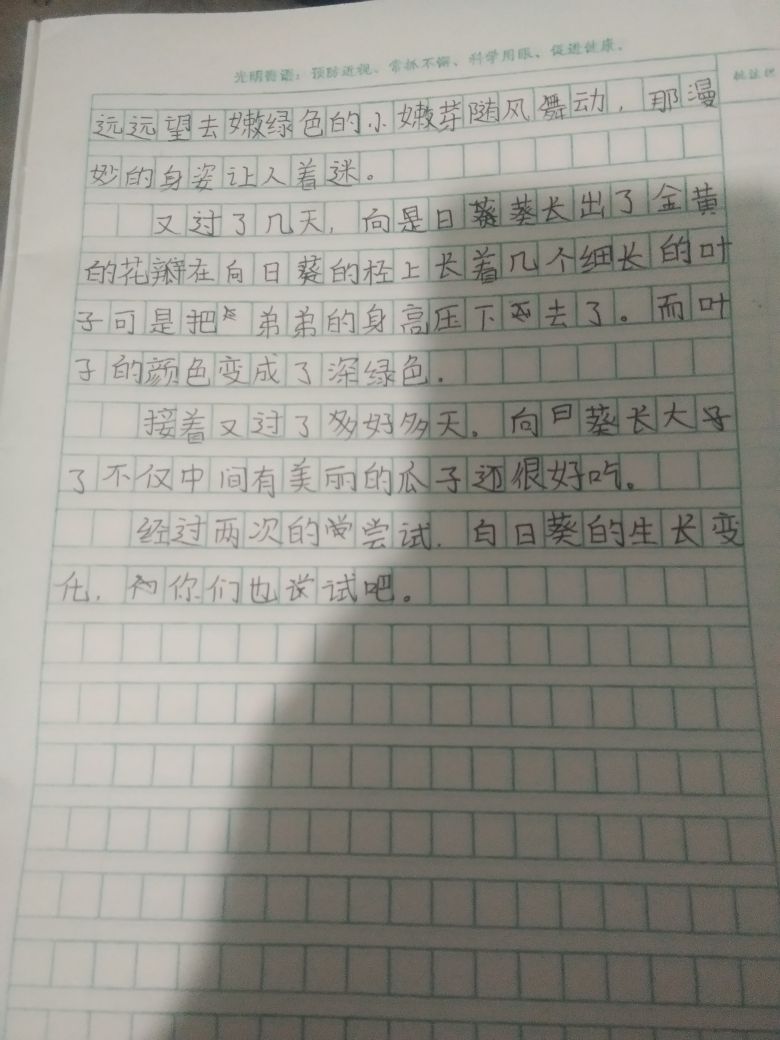 光明善语：预防近视、常抓不懈、科学用眼、促进健康。
批注栏
远远望去嫩绿色的小嫩芽随风舞动，那漫
妙的身姿让人着迷。
又过了几天，向是日葵葵长出了金黄
的花瓣在向日葵的柽上长着几个细长的叶
子可是把弟弟的身高压下不去了。而叶
子的颜色变成了深绿色.
接着又过了多好多天。向日葵长大子
了不仅中间有美丽的瓜子还很好吃。
经过两次的尝尝试.白日葵的生长变
化.你们也尝试吧。